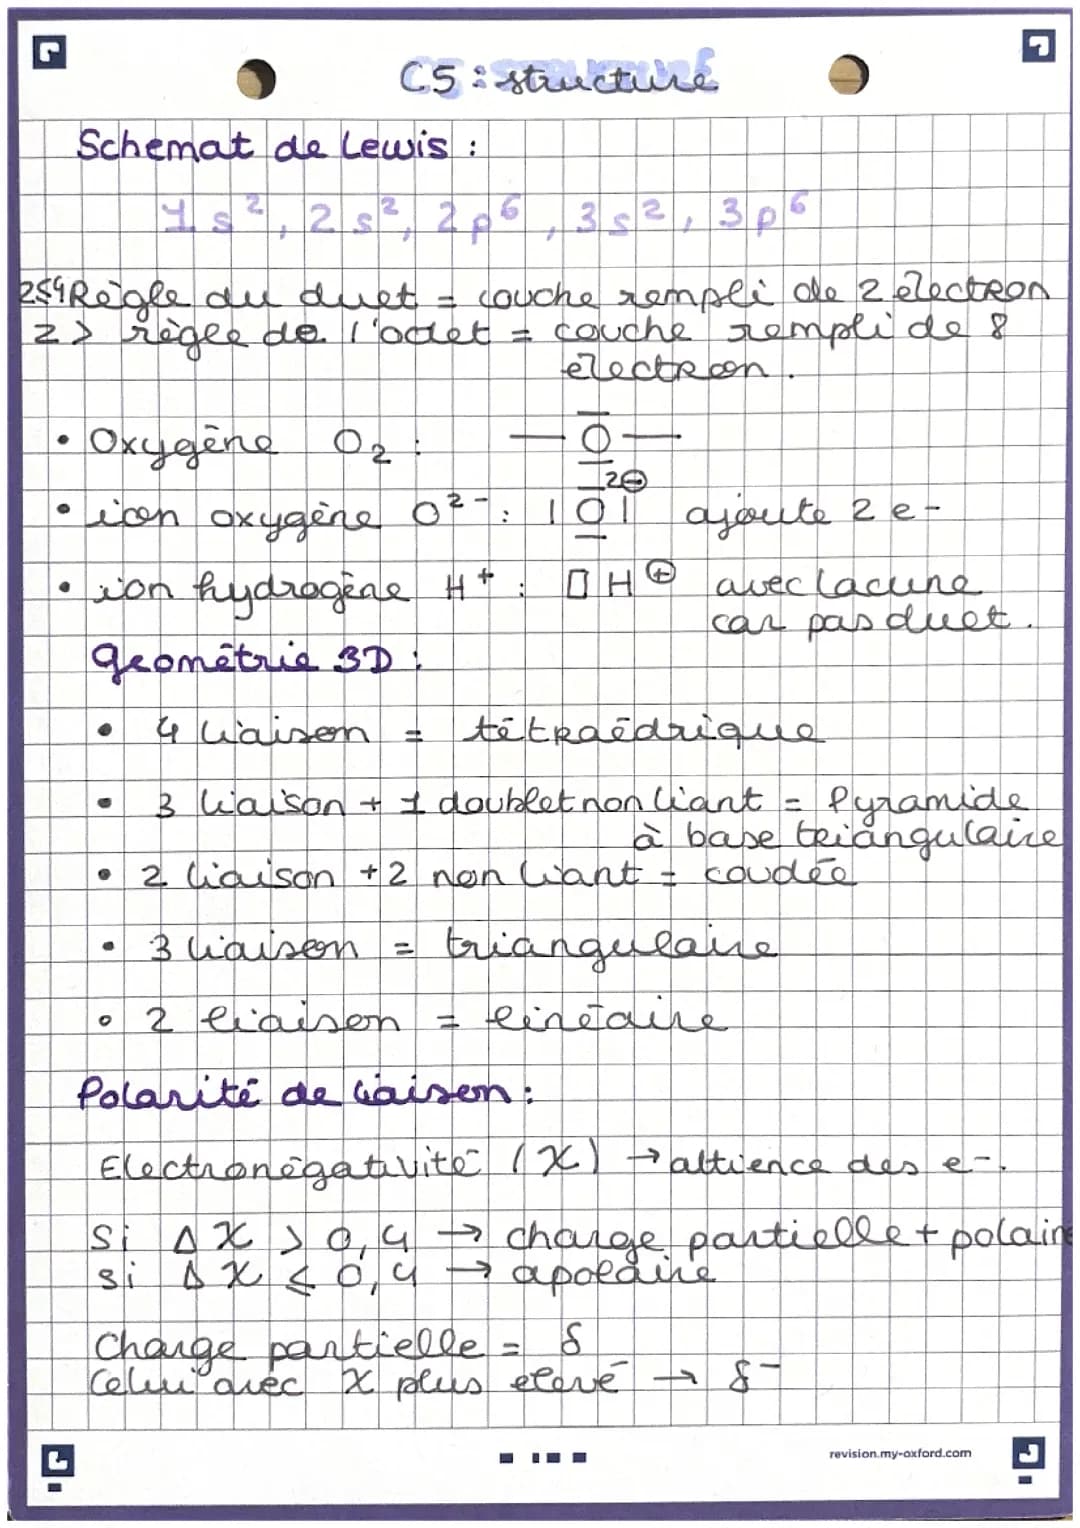 C5 : structure
Schemat de Lewis :
1s², 2s², 2p⁶, 3s², 3p⁶
Z≤4 Règle du duet = couche rempli de 2 électron
Z > règle de l'octet = couche rempli de 8
électron.
• Oxygène O₂ : — O —
• ion oxygène O²⁻ : |O| 2⊖ ajoute 2 e-
• ion hydrogène H⁺ : □ H ⊕ avec lacune
car pas duet.
géométrie 3D :
• 4 liaison = tétraédrique
• 3 liaison + 1 doublet non liant = Pyramide
à base triangulaire
• 2 liaison + 2 non liant = coudée
• 3 liaison = triangulaire
• 2 liaison = linéaire
Polarité de liaison :
Electronégativité (χ) → attience des e-.
Si Δχ > 0,4 → charge partielle + polaire
si Δχ ≤ 0,4 → apolaire
Charge partielle = δ
Celui avec χ plus elevé → δ⁻
revision.my-oxford.com